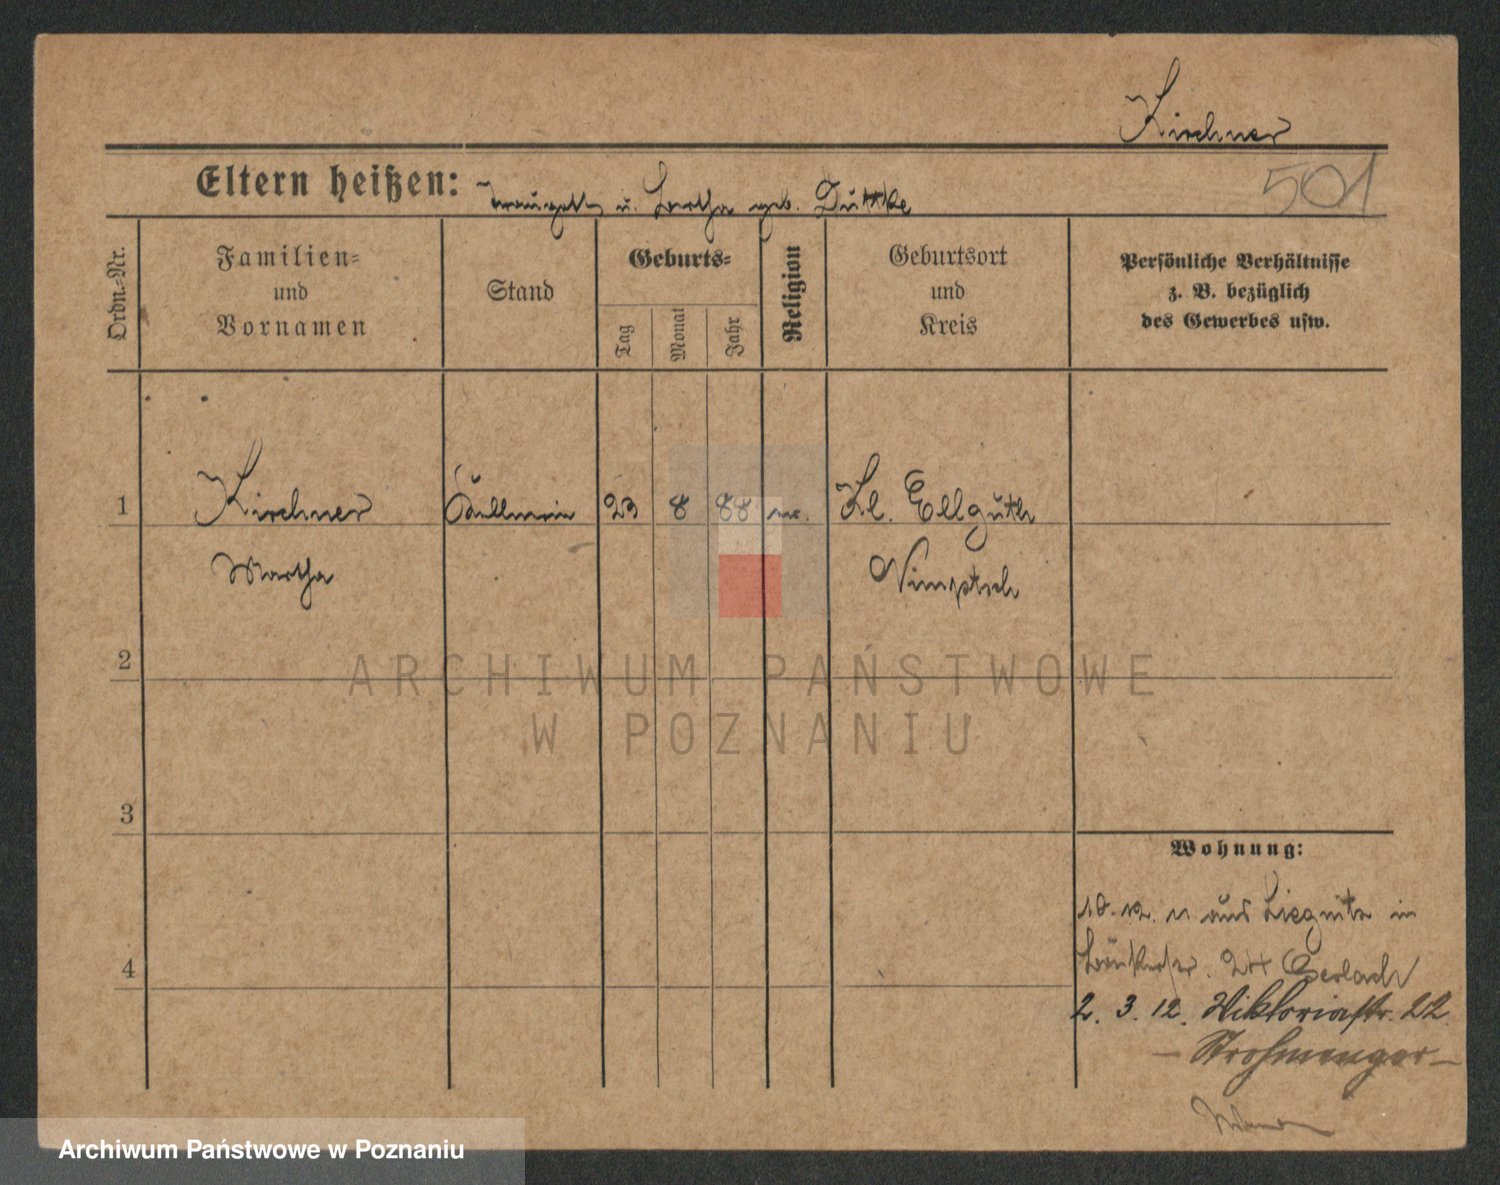 Kirchner
Eltern heißen: Traugott u. Bertha geb. Duttke
501
Ordn.-Nr.
Familien-
und
Vornamen
Stand
Geburts-
Tag
Monat
Jahr
Religion
Geburtsort
und
Kreis
Persönliche Verhältnisse
z. B. bezüglich
des Gewerbes usw.
1 Kirchner 23 8 88 Kl. Ellguth
Martha Nimptsch
2
ARCHIWUM PAŃSTWOWE
W POZNANIU
3
Wohnung:
10. 12. 11 aus Liegnitz in
4
24 Gerlach
2. 3. 12. Viktoriastr. 22.
– Strohmenger –
Archiwum Państwowe w Poznaniu